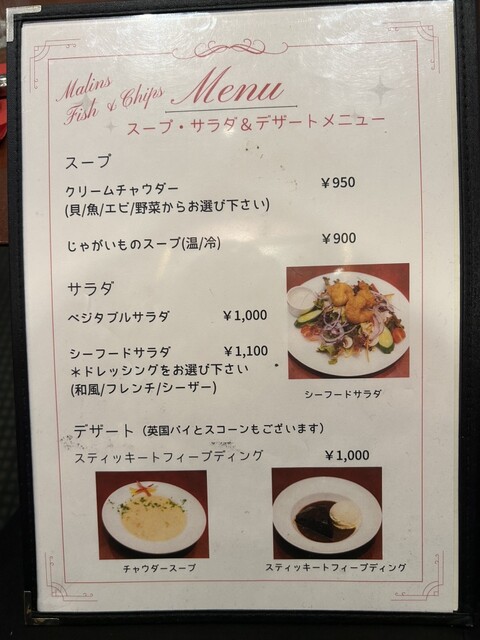 Malins
Fish & Chips
Menu
スープ・サラダ&デザートメニュー
スープ
クリームチャウダー ¥950
(貝/魚/エビ/野菜からお選び下さい)
じゃがいものスープ(温/冷) ¥900
サラダ
ベジタブルサラダ ¥1,000
シーフードサラダ ¥1,100
*ドレッシングをお選び下さい
(和風/フレンチ/シーザー)
シーフードサラダ
デザート (英国パイとスコーンもございます)
スティッキートフィープディング ¥1,000
チャウダースープ
スティッキートフィープディング